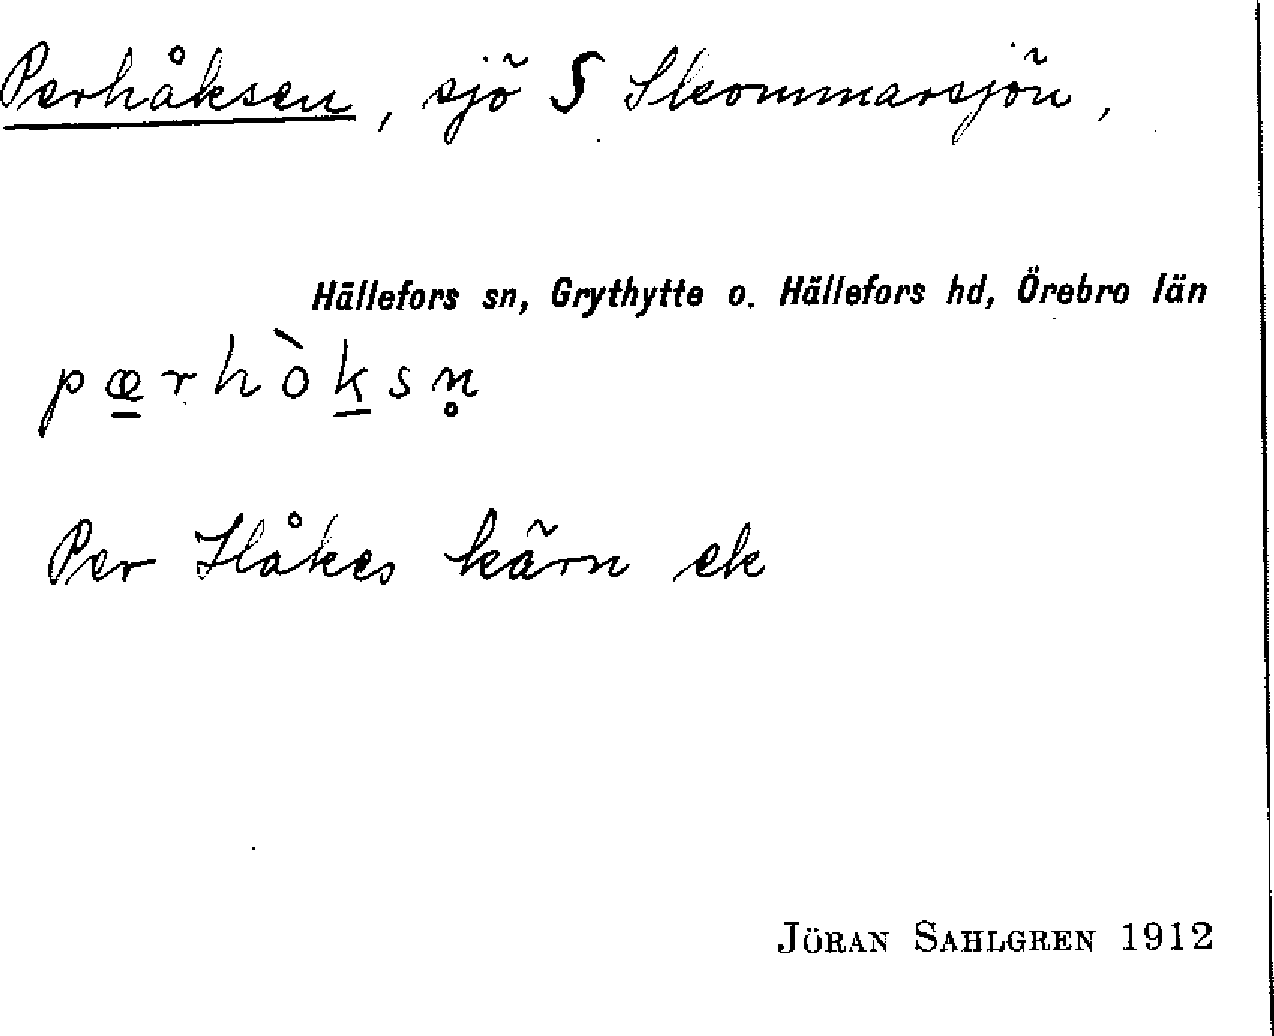 Perhåksen, sjö S Skommarsjön,
Hällefors sn, Grythytte o. Hällefors hd, Örebro län
pæ̱rhòḵsn̥
Per Håkes kärn ek
JÖRAN SAHLGREN 1912